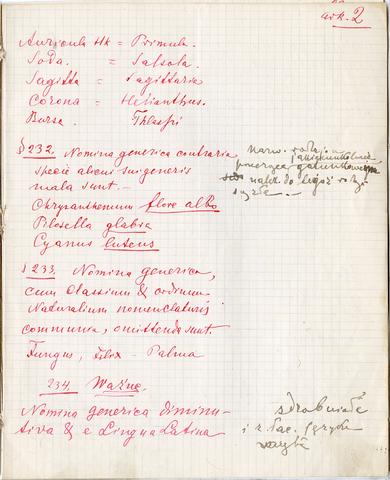 ark. 2
Auricula Hk = Primula.
Soda. = Salsola.
Sagitta = Sagittaria
Corona = Helianthus.
Bursa. Thlaspi
§ 232. Nomina generica contraria
speciei alicui sui generis
mala sunt. -
Chrysanthemum flore albo
Pilosella glabra
Cyanus luteus
§ 233. Nomina generica,
cum Classium & ordinum
Naturalium nomenclaturis
communia, omittenda sunt.
Fungus, Filix - Palma
234. Ważne.
Nomina generica diminu-
tiva & e Lingua Latina
zdrobniałe
i z łac. języka